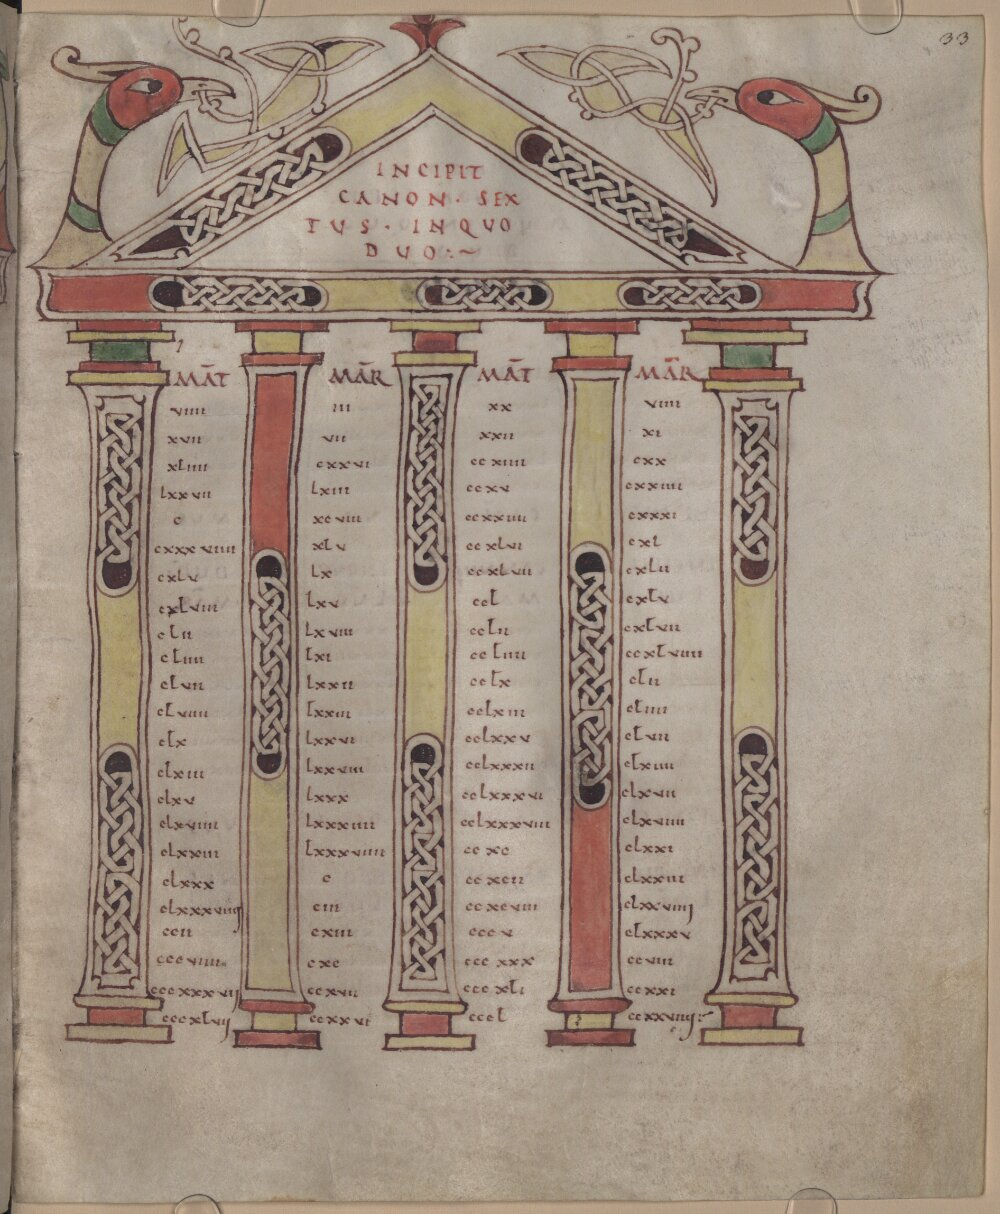 33
INCIPIT
CANON · SEX
TUS · INQVO
DUO:~
MĀT MĀR MĀT MĀR
viiii iii xx viiii
xvii vii xxii xi
xliiii cxxvi ccxiiii cxx
lxxvii lxiii ccxv cxxiiii
c xcviii ccxxiiii cxxxi
cxxxviiii xlv ccxlvi cxl
cxlv lx ccxlvii cxlii
cxlviii lxv ccl cxlv
clii lxviii cclii cxlvii
cliiii lxi ccliiii ccxlviiii
clvii lxxii cclx clii
clviiii lxxiii cclxiii cliiii
clx lxxvi cclxxv clvii
clxiii lxxviii cclxxxii clxiiii
clxv lxxx cclxxxvi clxvii
clxviiii lxxxiiii cclxxxviii clxviiii
clxxiii lxxxviiii ccxc clxxi
clxxx c ccxcii clxxiii
clxxxviiij ciii ccxcviii clxxviiij
ccii cxiii cccv clxxxv
cccviiii cxc cccxxx ccviii
cccxxxvij ccxvii cccxli ccxxi
cccxlvij ccxxvi cccl ccxxviiij